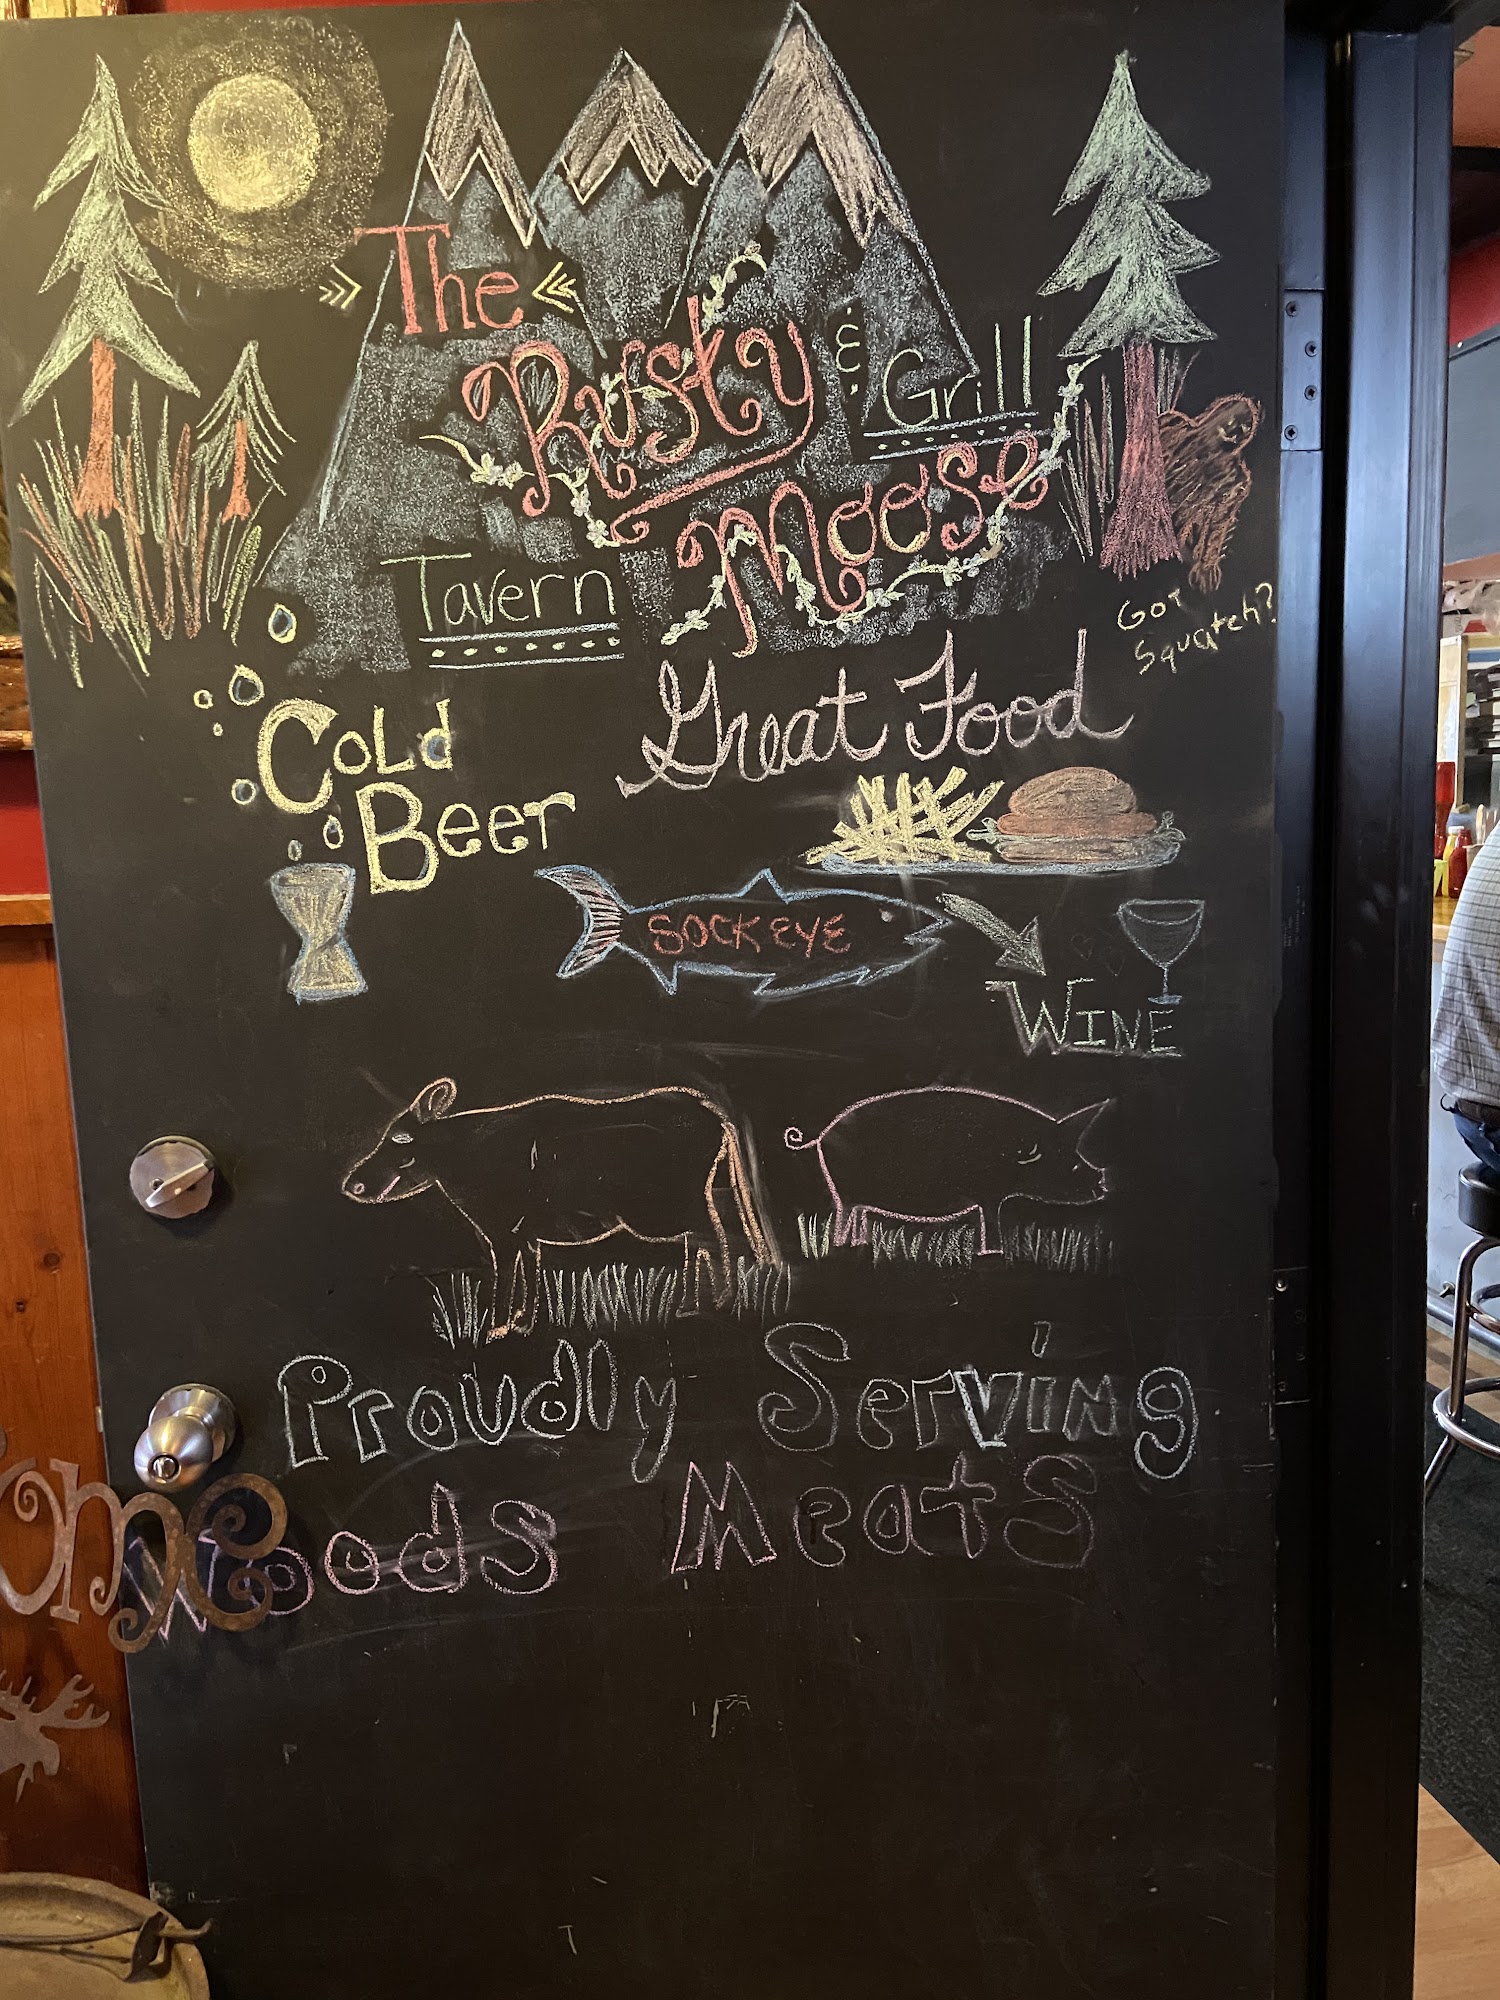 The
Rusty
& Grill
Moose
Tavern
Got
Squatch?
Cold
Beer
Great Food
SOCKEYE
WINE
Proudly Serving
Woods Meats